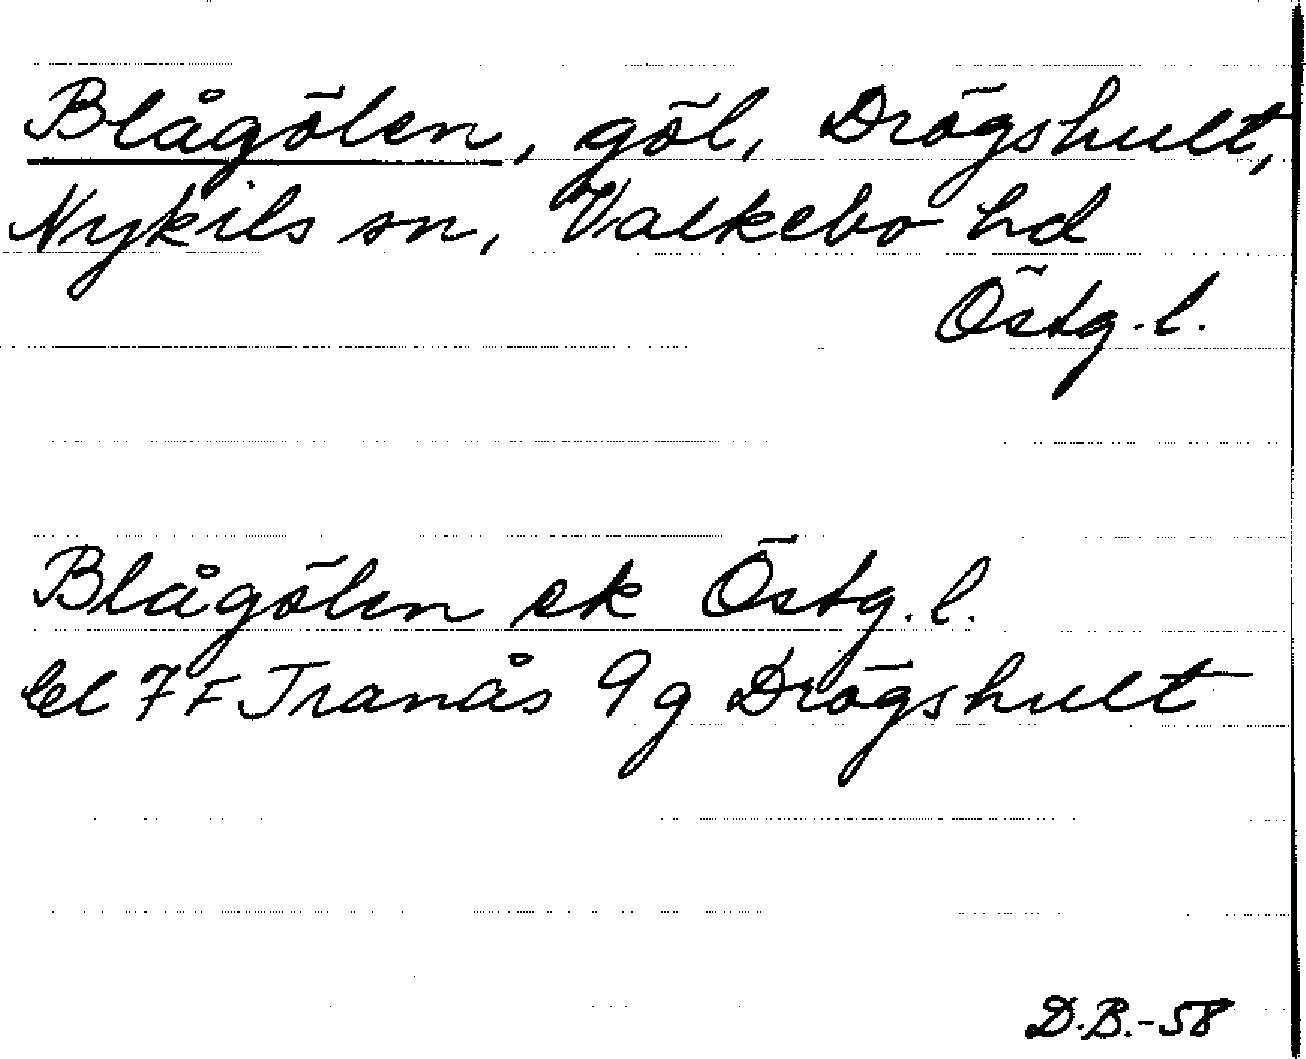 Blågölen, göl, Drögshult,
Nykils sn, Valkebo hd
Östg. l.
Blågölen ek Östg. l.
bl 7 F Tranås 9 g Drögshult
D.B.-58